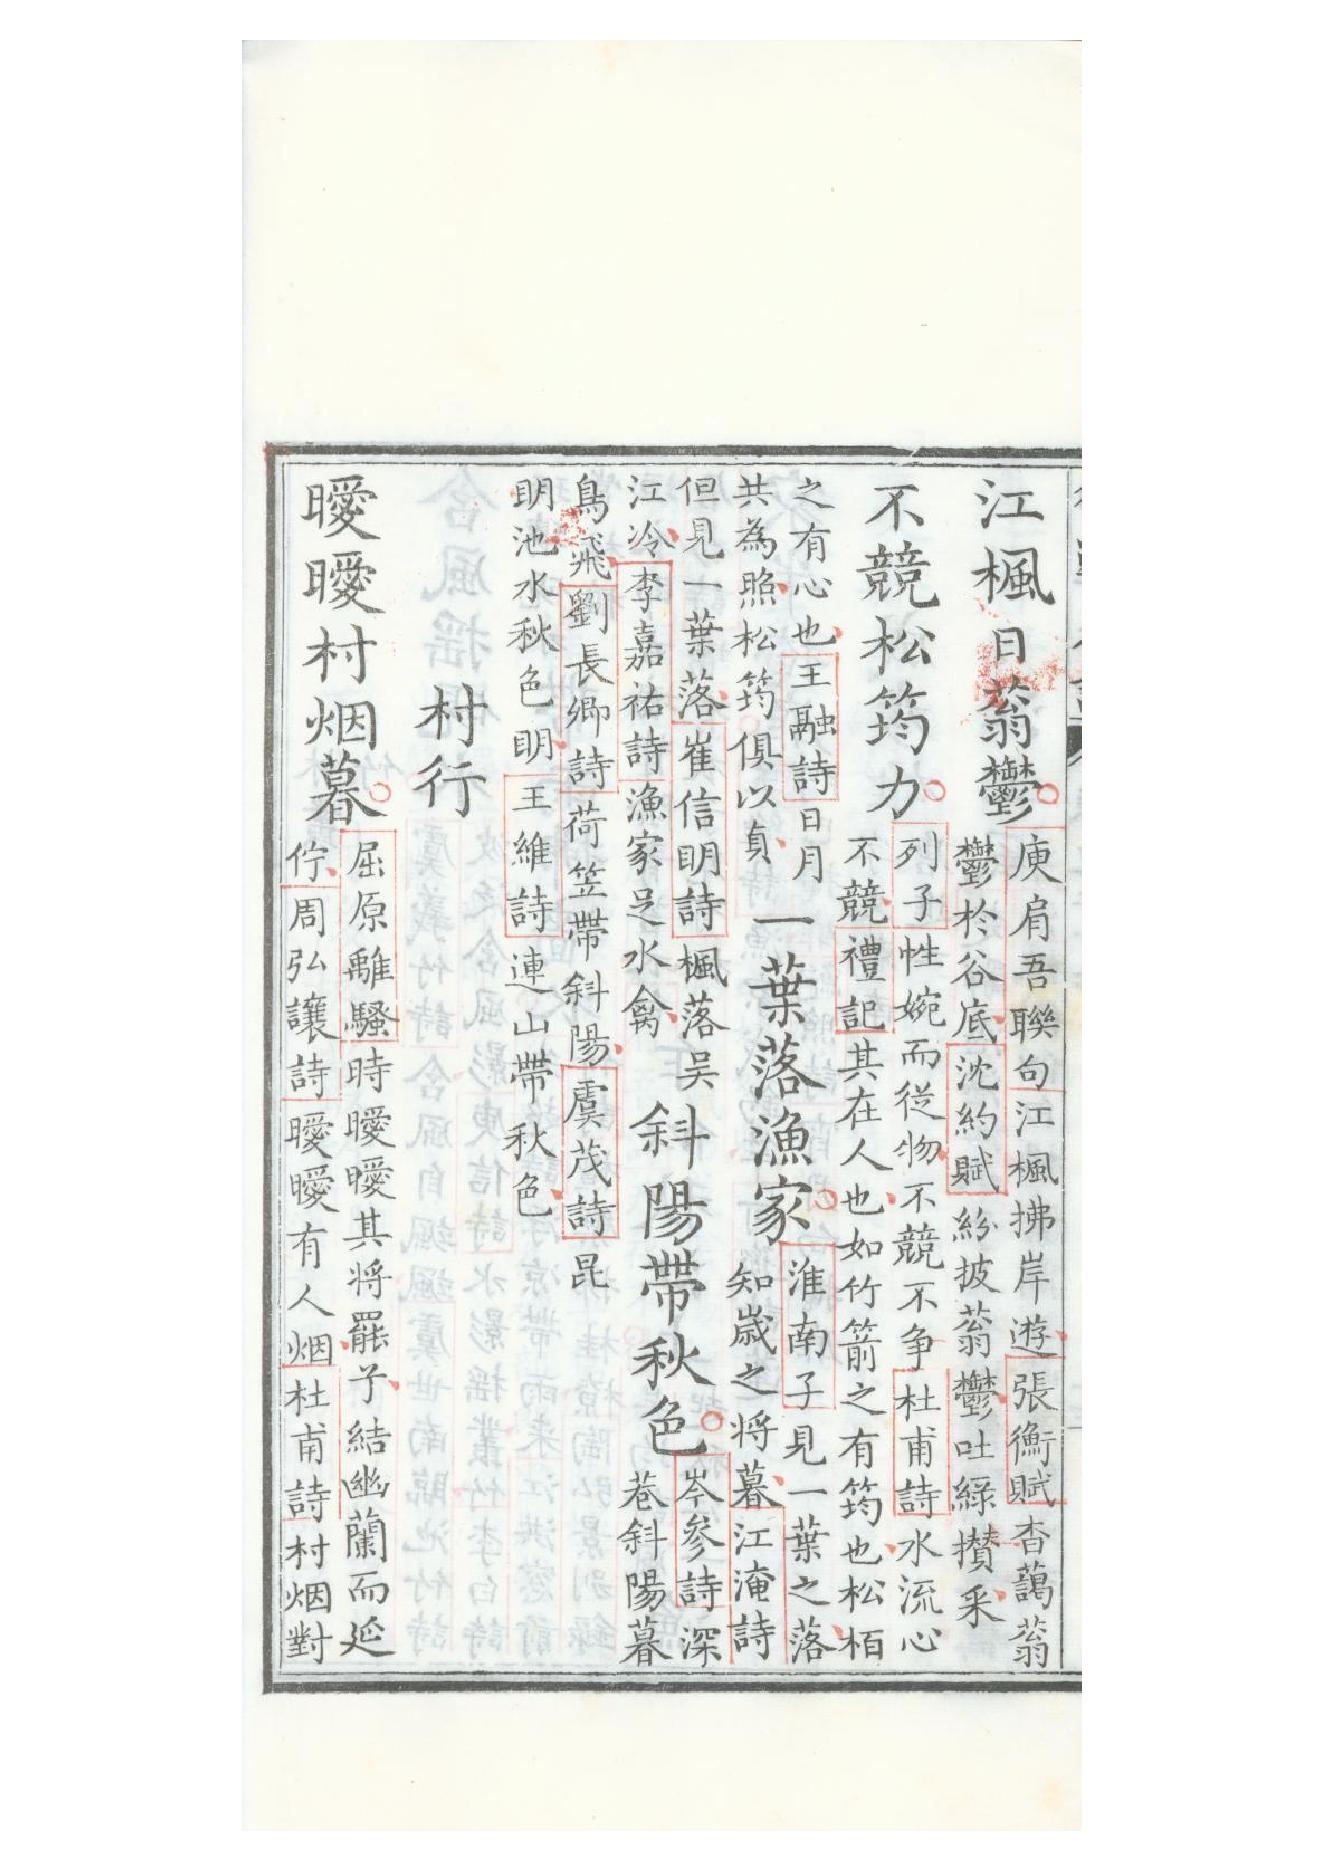 江楓日蓊鬱
庾肩吾聯句江楓拂岸遊張衡賦杳藹蓊
鬱於谷底沈約賦紛披蓊鬱吐綠攢采
不競松筠力
列子性婉而從物不競不爭杜甫詩水流心
不競禮記其在人也如竹箭之有筠也松栢
之有心也王融詩日月
共為照松筠俱以貞
一葉落漁家
淮南子見一葉之落
知歲之將暮江淹詩
但見一葉落崔信明詩楓落吳
江冷李嘉祐詩漁家足水禽
斜陽帶秋色
岑參詩深
巷斜陽暮
鳥飛劉長卿詩荷笠帶斜陽虞茂詩昆
明池水秋色明王維詩連山帶秋色
村行
曖曖村烟暮
屈原離騷時曖曖其將罷予結幽蘭而延
佇周弘讓詩曖曖有人烟杜甫詩村烟對